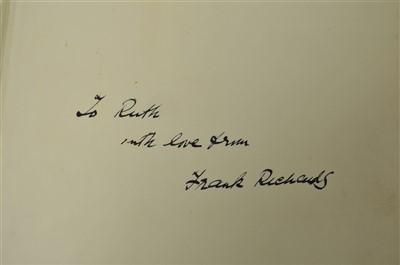 To Ruth
with love from
Frank Richards